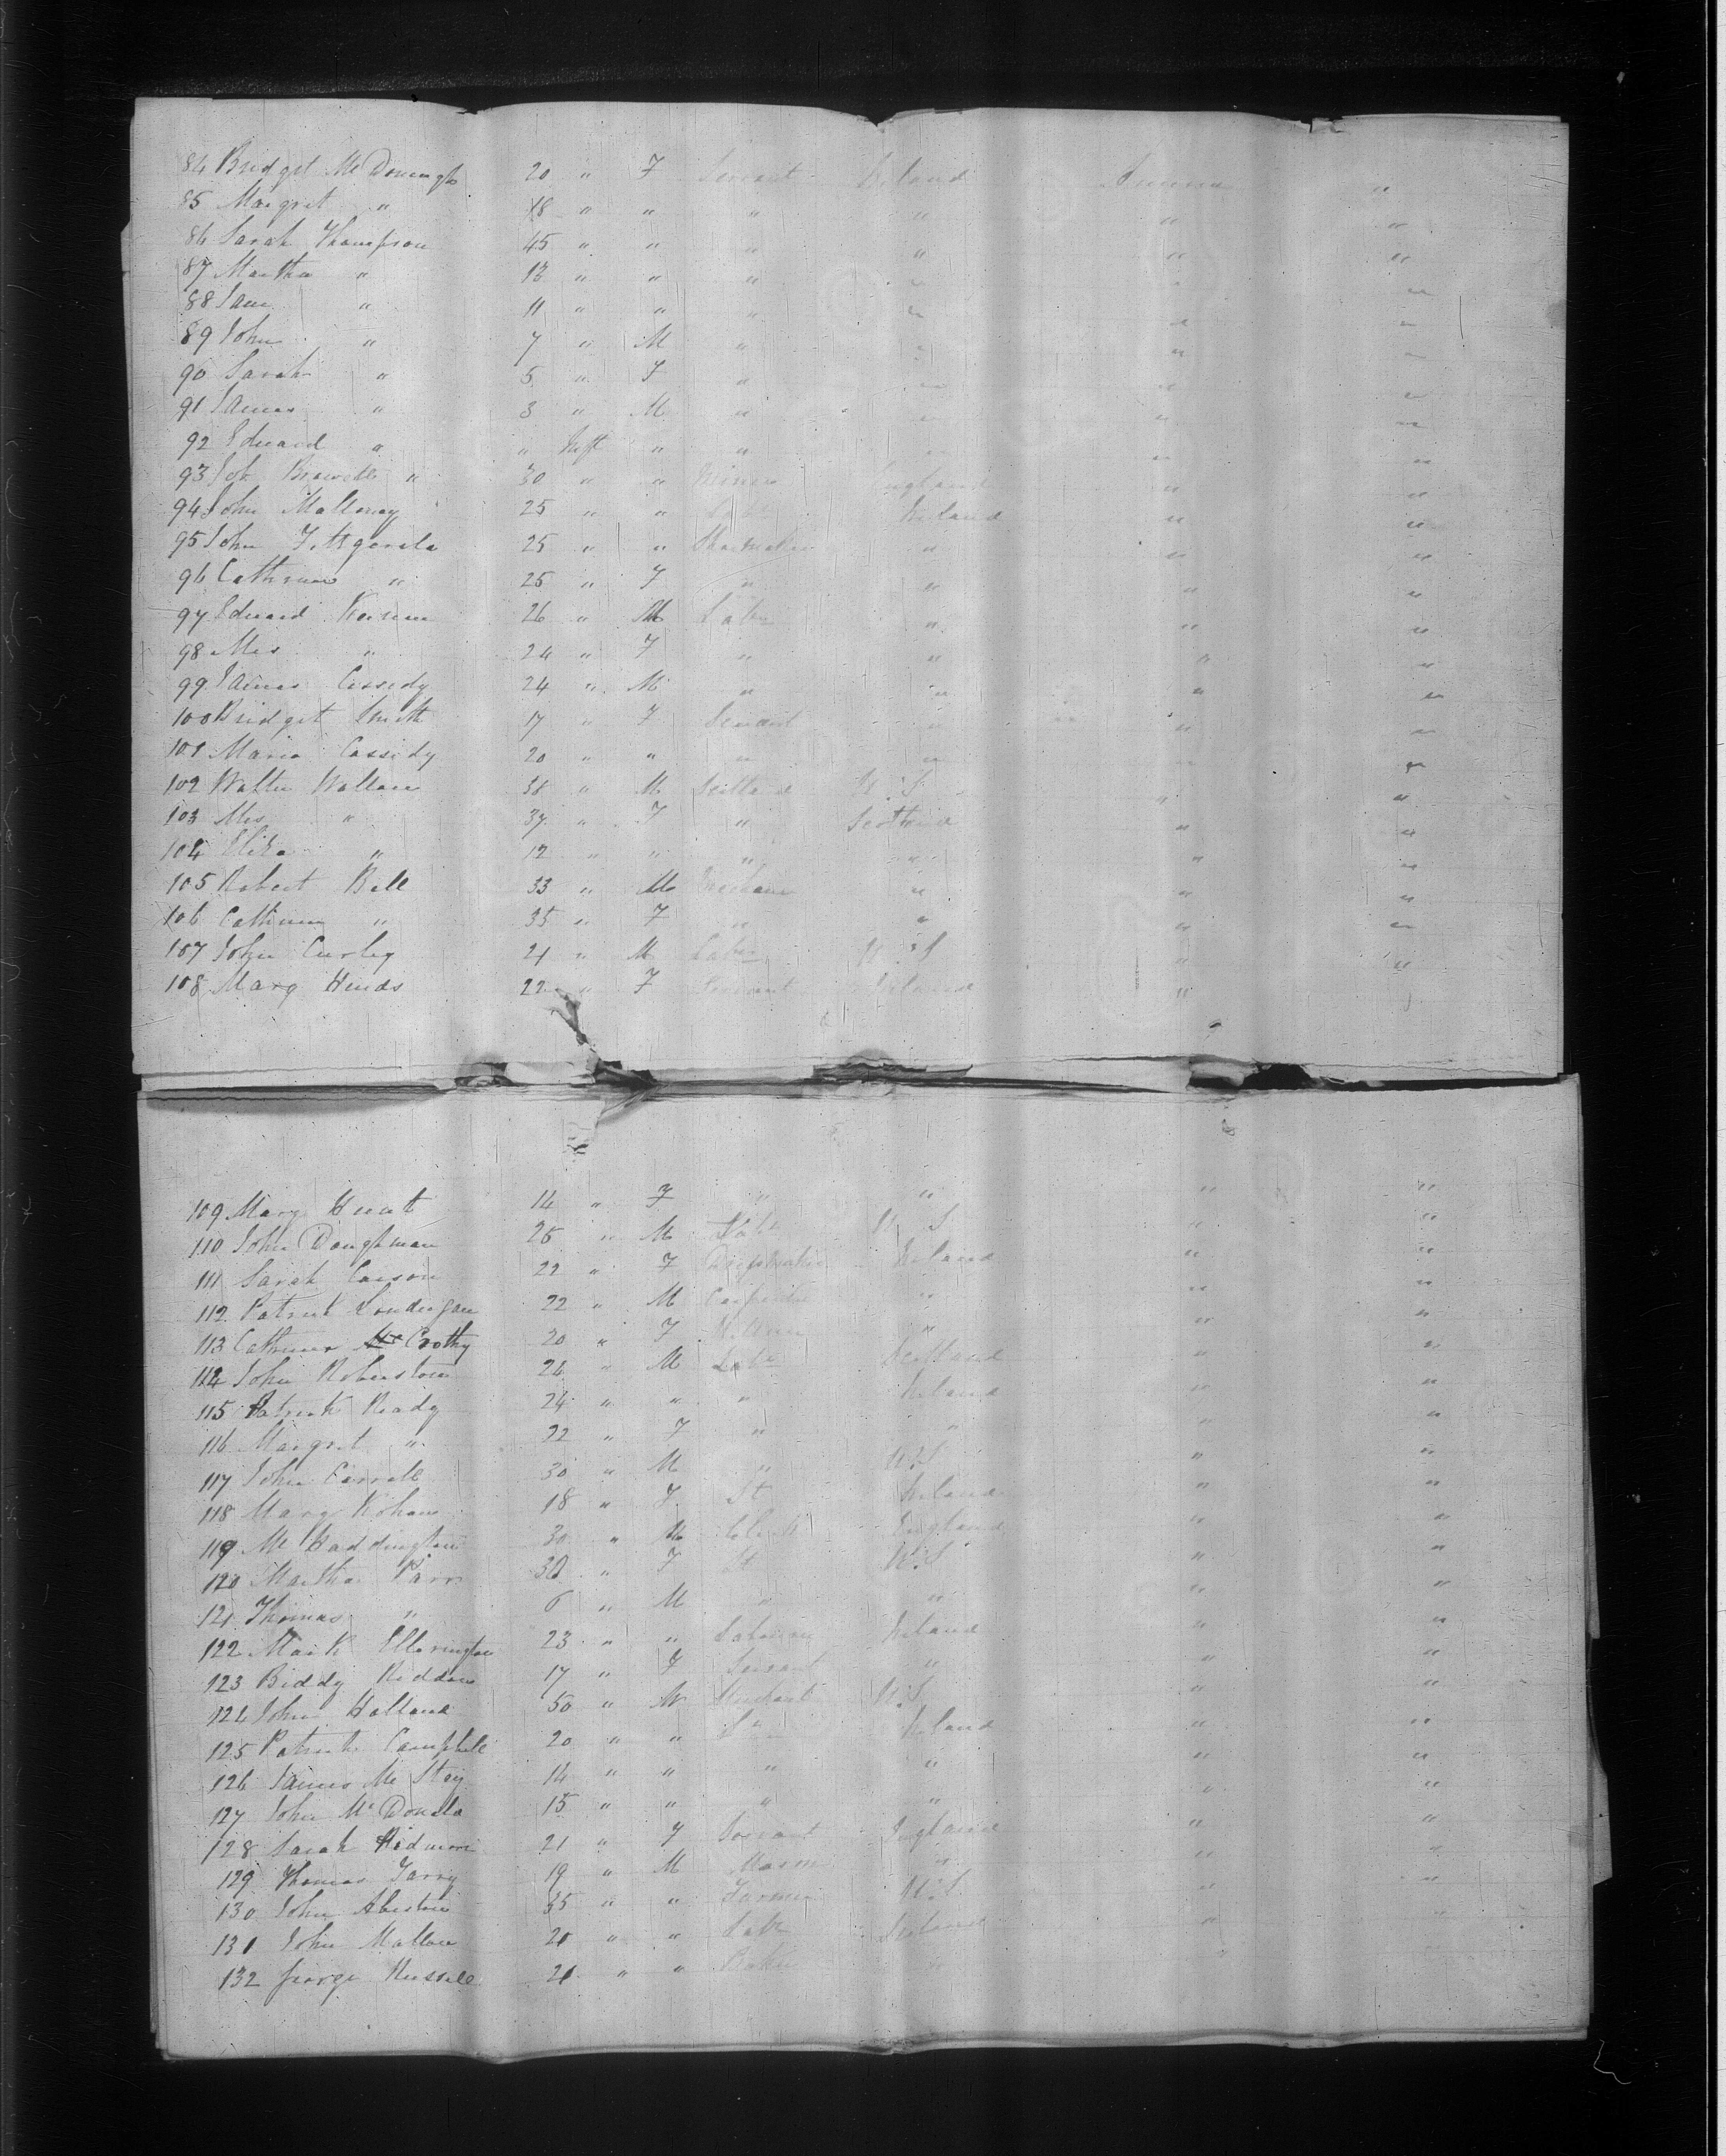 84 Bridget Mc Donough 20 " F Servant Ireland America "
85 Margret " 18 " " " " " "
86 Sarah Thompson 45 " " " " " "
87 Martha " 13 " " " " " "
88 Jane " 11 " " " " " "
89 John " 7 " M " " " "
90 Sarah " 5 " F " " " "
91 James " 3 " M " " " "
92 Edward " " Inft " " " " "
93 Brownell " 30 " " Miner England " "
94 John Malloney 25 " " Labr Ireland " "
95 John Fittgerala 25 " " Shoemaker " " "
96 Cathrine " 25 " F " " " "
97 Edward 26 " M Labr " " "
98 Mrs " 24 " F " " " "
99 James Cassidy 24 " M " " " "
100 Bridget Smith 17 " F Servant " " "
101 Maria Cassidy 20 " " " " " "
102 Walter Wallace 38 " M Scotland U.S " "
103 Mrs " 37 " F " Scotland " "
104 Eliza " 12 " " " " " "
105 Robert Bell 33 " M " " "
106 Cathrine " 35 " F " " " "
107 John Curley 21 " M Labr U.S " "
108 Mary Hinds 22 " F Servant Ireland " "
109 Mary Hunt 14 " F " " " "
110 John Doughman 25 " M Labr U.S " "
111 Sarah Carson 22 " F Ireland " "
112 Patrick Londergan 22 " M Carpenter " " "
113 Cathrine Crothy 20 " F " " "
114 John Roberstown 24 " M Labr Scotland " "
115 Patrick Ready 24 " " " Ireland " "
116 Margret " 22 " F " " " "
117 John Carrell 30 " M " U.S " "
118 Mary Kohan 18 " F St Ireland " "
119 Mc Haddington 30 " M Clerk England " "
120 Martha Parr 30 " F St U.S " "
121 Thomas " 6 " M " " " "
122 Mark Ellerington 23 " " Labourer Ireland " "
123 Biddy Riddan 17 " F Servant " " "
124 John Holland 50 " M Merchant U.S " "
125 Patrick Campbell 20 " " Ireland " "
126 James Mc Stay 14 " " " " " "
127 John Mc Donala 15 " " " " " "
128 Sarah Ridmore 21 " F Servant England " "
129 Thomas Tarry 19 " M Mason " " "
130 John 35 " " Farmer U.S " "
131 John Mallon 21 " " Labr Ireland " "
132 George Russell 21 " " Baker "